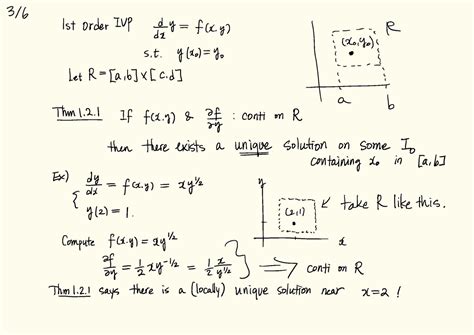 3/6
1st order IVP d/dx y = f(x,y)
s.t. y(x₀) = y₀
Let R = [a,b] × [c,d]
(x₀,y₀) R
a b
Thm 1.2.1 If f(x,y) & ∂f/∂y : conti on R
then there exists a unique solution on some I₀
containing x₀ in [a,b]
Ex) { dy/dx = f(x,y) = xy^1/2
y(2) = 1.
y
(2,1)
x
take R like this.
Compute f(x,y) = xy^1/2
∂f/∂y = 1/2 xy^-1/2 = 1/2 x/y^1/2 } ⟹ conti on R
Thm 1.2.1 says there is a (locally) unique solution near x=2 !